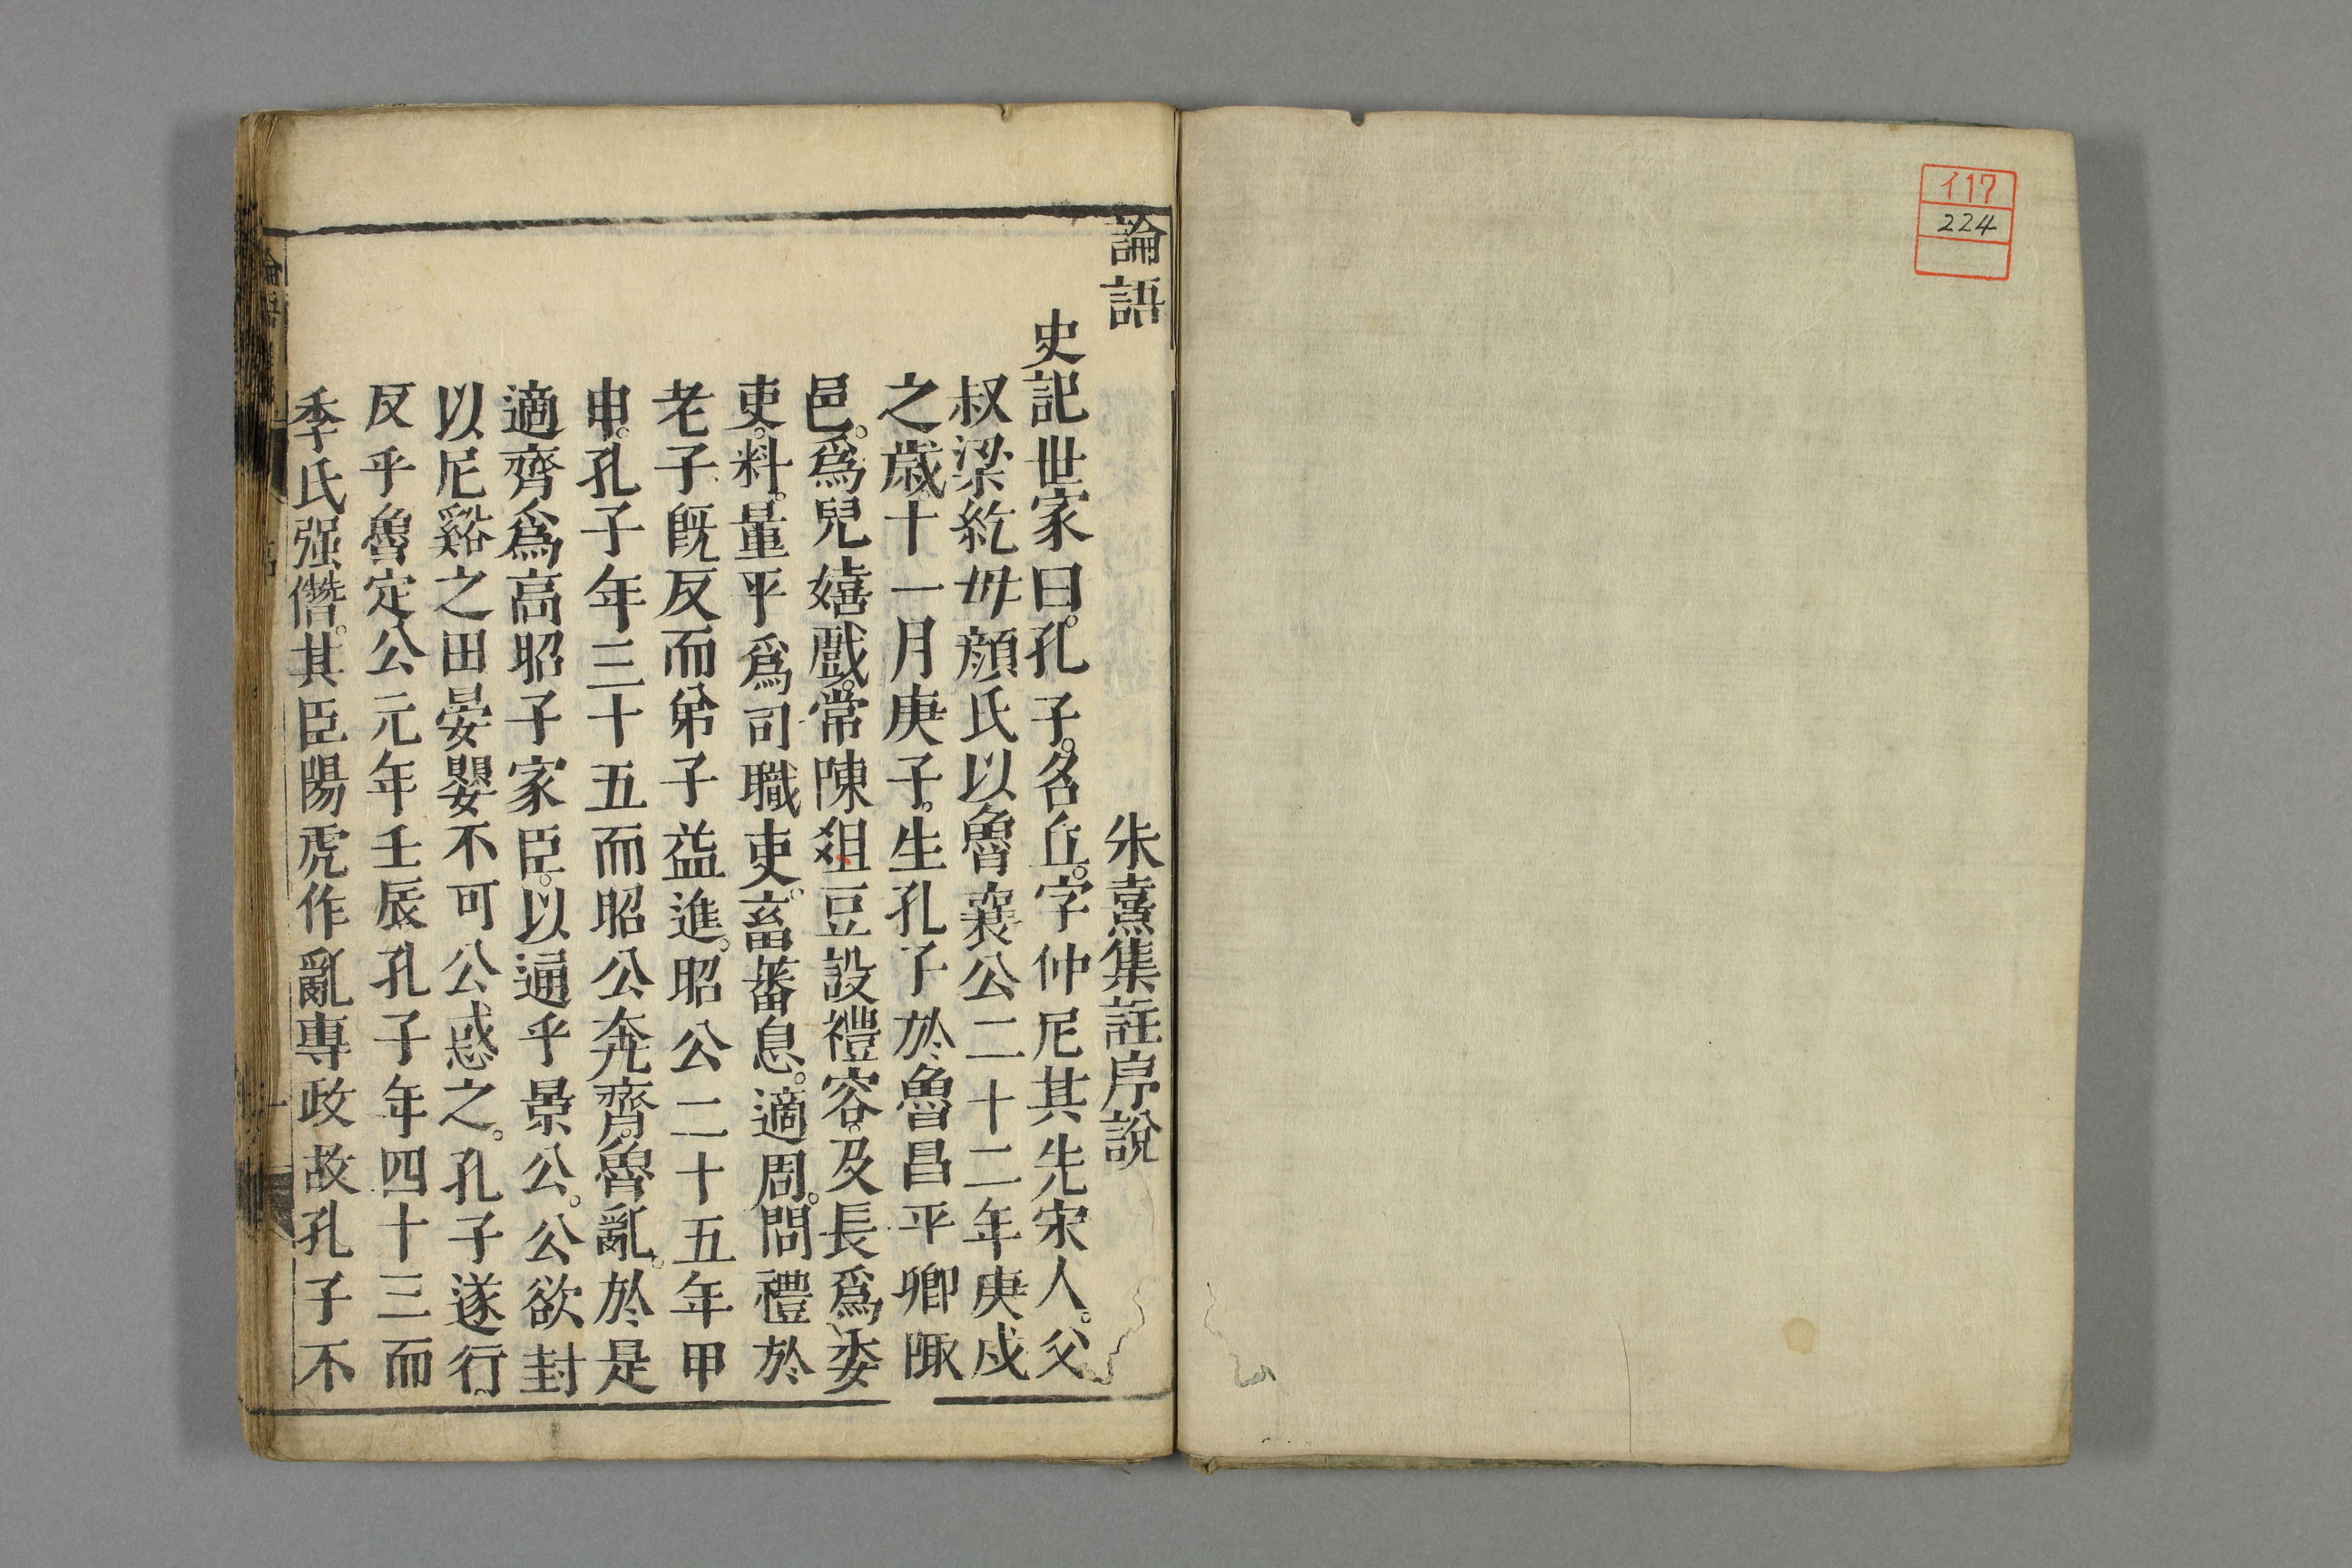 イ17
224
論語
朱熹集註序說
史記世家曰。孔子。名丘。字仲尼其先宋人。父
叔梁紇毋顏氏以魯襄公二十二年庚戌
之歲十一月庚子。生孔子於魯昌平鄉陬
邑。爲兒嬉戲。常陳俎豆設禮容。及長爲委
吏。料。量平爲司職吏。畜蕃息。適周。問禮於
老子、旣反而弟子益進。昭公二十五年甲
申。孔子年三十五而昭公奔齊。魯亂。於是
適齊爲高昭子家臣。以通乎景公。公欲封
以尼谿之田晏嬰不可公惑之。孔子遂行。
反乎魯定公元年壬辰孔子年四十三而
季氏强僭。其臣陽虎作亂專政故孔子不